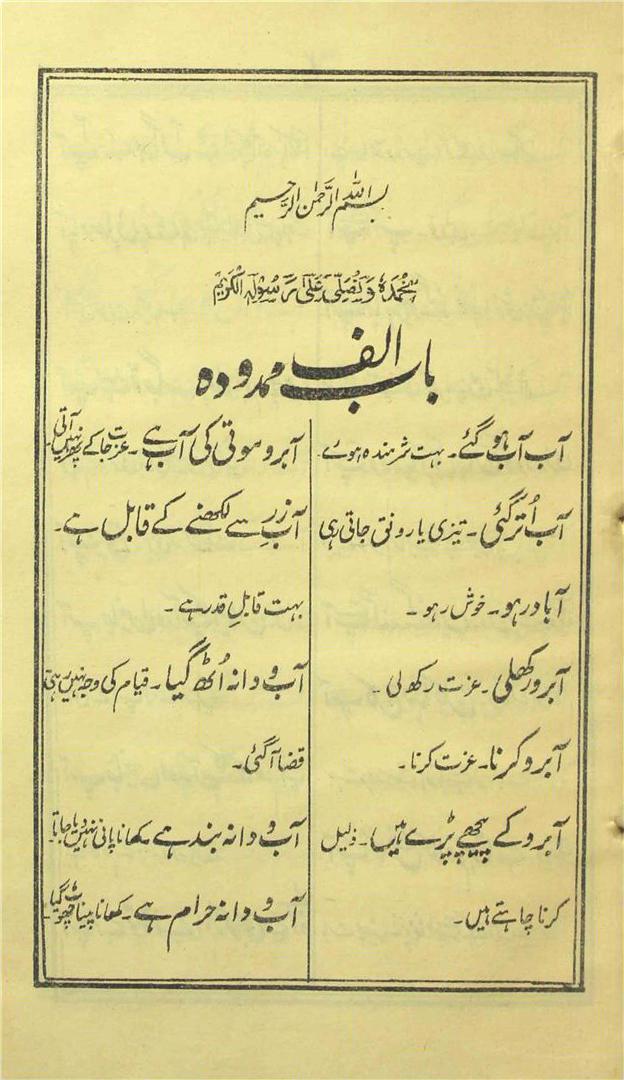 بسم اللہ الرحمٰن الرحیم
نحمدہٗ و نصلی علیٰ رسولہ الکریم
باب الف ممدودہ
آب آب ہو گئے۔ بہت شرمندہ ہوئے۔
آب اُتر گئی۔ تیزی یا رونق جاتی رہی
آباد رہو۔ خوش رہو۔
آبرو رکھلی۔ عزت رکھ لی۔
آبرو کرنا۔ عزت کرنا۔
آبرو کے پیچھے پڑے ہیں۔ ذلیل
کرنا چاہتے ہیں۔
آبرو موتی کی آب ہے۔ عزت جا کے پھر نہیں آتی۔
آبِ زر سے لکھنے کے قابل ہے۔
بہت قابلِ قدر ہے۔
آب و دانہ اُٹھ گیا۔ قیام کی وجہ نہیں رہی
قضا آ گئی۔
آب و دانہ بند ہے۔ کھانا پانی نہیں دیا جاتا۔
آب و دانہ حرام ہے۔ کھانا پینا چھوٹ گیا۔